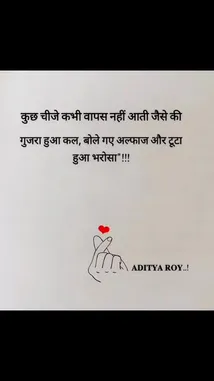 कुछ चीजे कभी वापस नहीं आती जैसे की
गुजरा हुआ कल, बोले गए अल्फाज और टूटा
हुआ भरोसा"!!!
ADITYA ROY..!